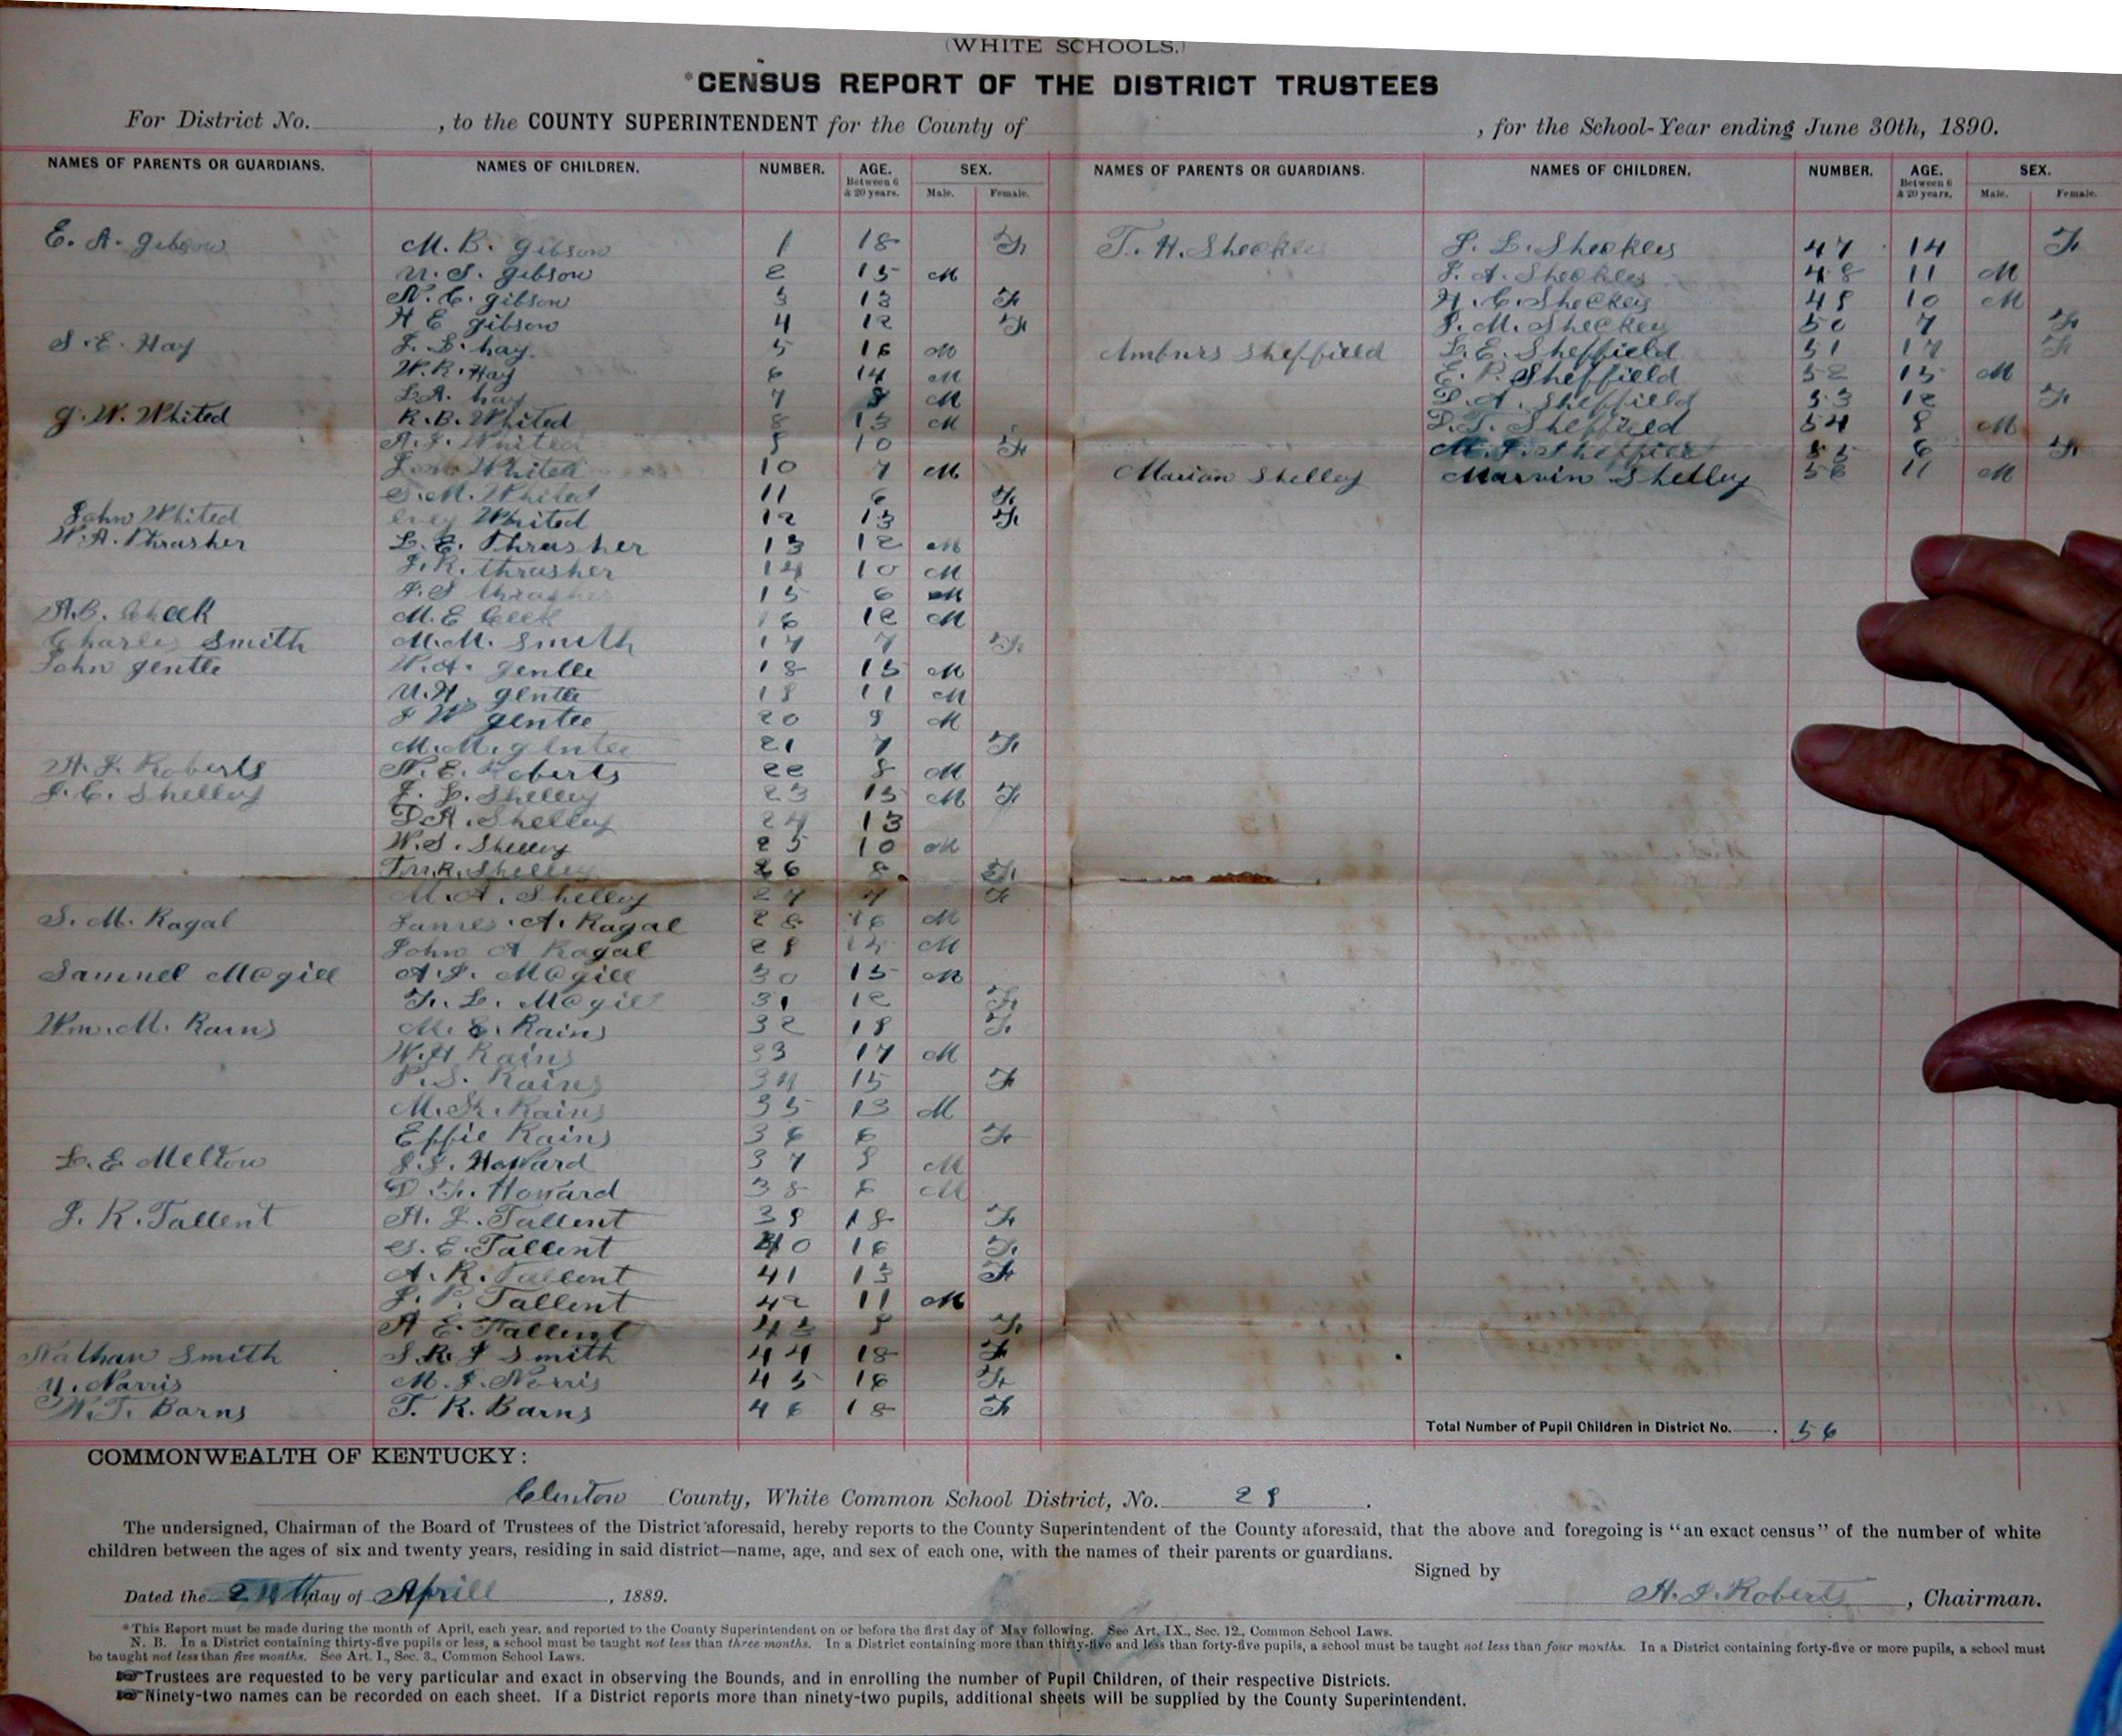 (WHITE SCHOOLS.)
*CENSUS REPORT OF THE DISTRICT TRUSTEES
For District No. , to the COUNTY SUPERINTENDENT for the County of , for the School-Year ending June 30th, 1890.
NAMES OF PARENTS OR GUARDIANS. NAMES OF CHILDREN. NUMBER. AGE. Between 6 & 20 years. SEX. Male. Female.
E. A. gibson M. B. gibson 1 18 F
U. S. gibson 2 15 M
N. C. gibson 3 13 F
H E gibson 4 12 F
S. E. Hay J. B. hay. 5 16 M
W. R. Hay 6 14 M
L. A. hay 7 M
g. W. Whited R. B. Whited 8 13 M
A. J. Whited 9 10 F
Whited 10 7 M
S. M. Whited 11 6 F
John Whited Whited 12 13 F
W. A. Thrasher L. E. Thrasher 13 12 M
J. R. thrasher 14 10 M
J. S thrasher 15 6 M
A. B. Cheek M. E Ceek 16 12 M
Charles Smith M. M. Smith 17 7 F
John gentle W. A. gentle 18 15 M
U. H. gentle 19 11 M
J W gentle 20 9 M
M. M. gentle 21 7 F
A. J. Roberts N. E. Roberts 22 8 M
J. C. Shelley J. L. Shelley 23 15 M F
D A. Shelley 24 13
W. S. Shelley 25 10 M
Shelley 26 8 F
M. A. Shelley 27 7 F
S. M. Ragal James. A. Ragal 28 16 M
John A Ragal 29 M
Samuel McGill A. J. McGill 30 15 M
F. L. McGill 31 12 F
Wm. M. Rains M. E. Rains 32 19 F
W. H Rains 33 17 M
P. S. Rains 34 15 F
Rains 35 13 M
Effie Rains 36 6 F
L. E. Melton J. J. Howard 37 9 M
D. F. Howard 38 6 M
J. K. Tallent A. J. Tallent 39 18 F
S. E. Tallent 40 16 F
A. R. Tallent 41 13 F
J. P. Tallent 42 11 M
A E. Tallent 43 9 F
Nathan Smith S R J Smith 44 18 F
Norris M. J. Norris 45 16 F
W. T. Barns T. R. Barns 46 18 F
NAMES OF PARENTS OR GUARDIANS. NAMES OF CHILDREN. NUMBER. AGE. Between 6 & 20 years. SEX. Male. Female.
T. H. Sheckles J. L. Sheckles 47 14 F
J. A. Sheckles 48 11 M
H. C. Sheckles 49 10 M
J. M. Sheckles 50 7 F
Amburs Sheffield L. E. Sheffield 51 17 F
E. P. Sheffield 52 15 M
D. A. Sheffield 53 12 F
D. T. Sheffield 54 9 M
M. J. Sheffield 55 6 F
Marian Shelley Marvin Shelley 56 11 M
Total Number of Pupil Children in District No. . 56
COMMONWEALTH OF KENTUCKY:
Clinton County, White Common School District, No. 29 .
The undersigned, Chairman of the Board of Trustees of the District aforesaid, hereby reports to the County Superintendent of the County aforesaid, that the above and foregoing is "an exact census" of the number of white
children between the ages of six and twenty years, residing in said district—name, age, and sex of each one, with the names of their parents or guardians.
Signed by
Dated the 24th day of Aprill , 1889. A. J. Roberts , Chairman.
*This Report must be made during the month of April, each year, and reported to the County Superintendent on or before the first day of May following. See Art. IX., Sec. 12., Common School Laws.
N. B. In a District containing thirty-five pupils or less, a school must be taught not less than three months. In a District containing more than thirty-five and less than forty-five pupils, a school must be taught not less than four months. In a District containing forty-five or more pupils, a school must
be taught not less than five months. See Art. 1., Sec. 3., Common School Laws.
☞Trustees are requested to be very particular and exact in observing the Bounds, and in enrolling the number of Pupil Children, of their respective Districts.
☞Ninety-two names can be recorded on each sheet. If a District reports more than ninety-two pupils, additional sheets will be supplied by the County Superintendent.